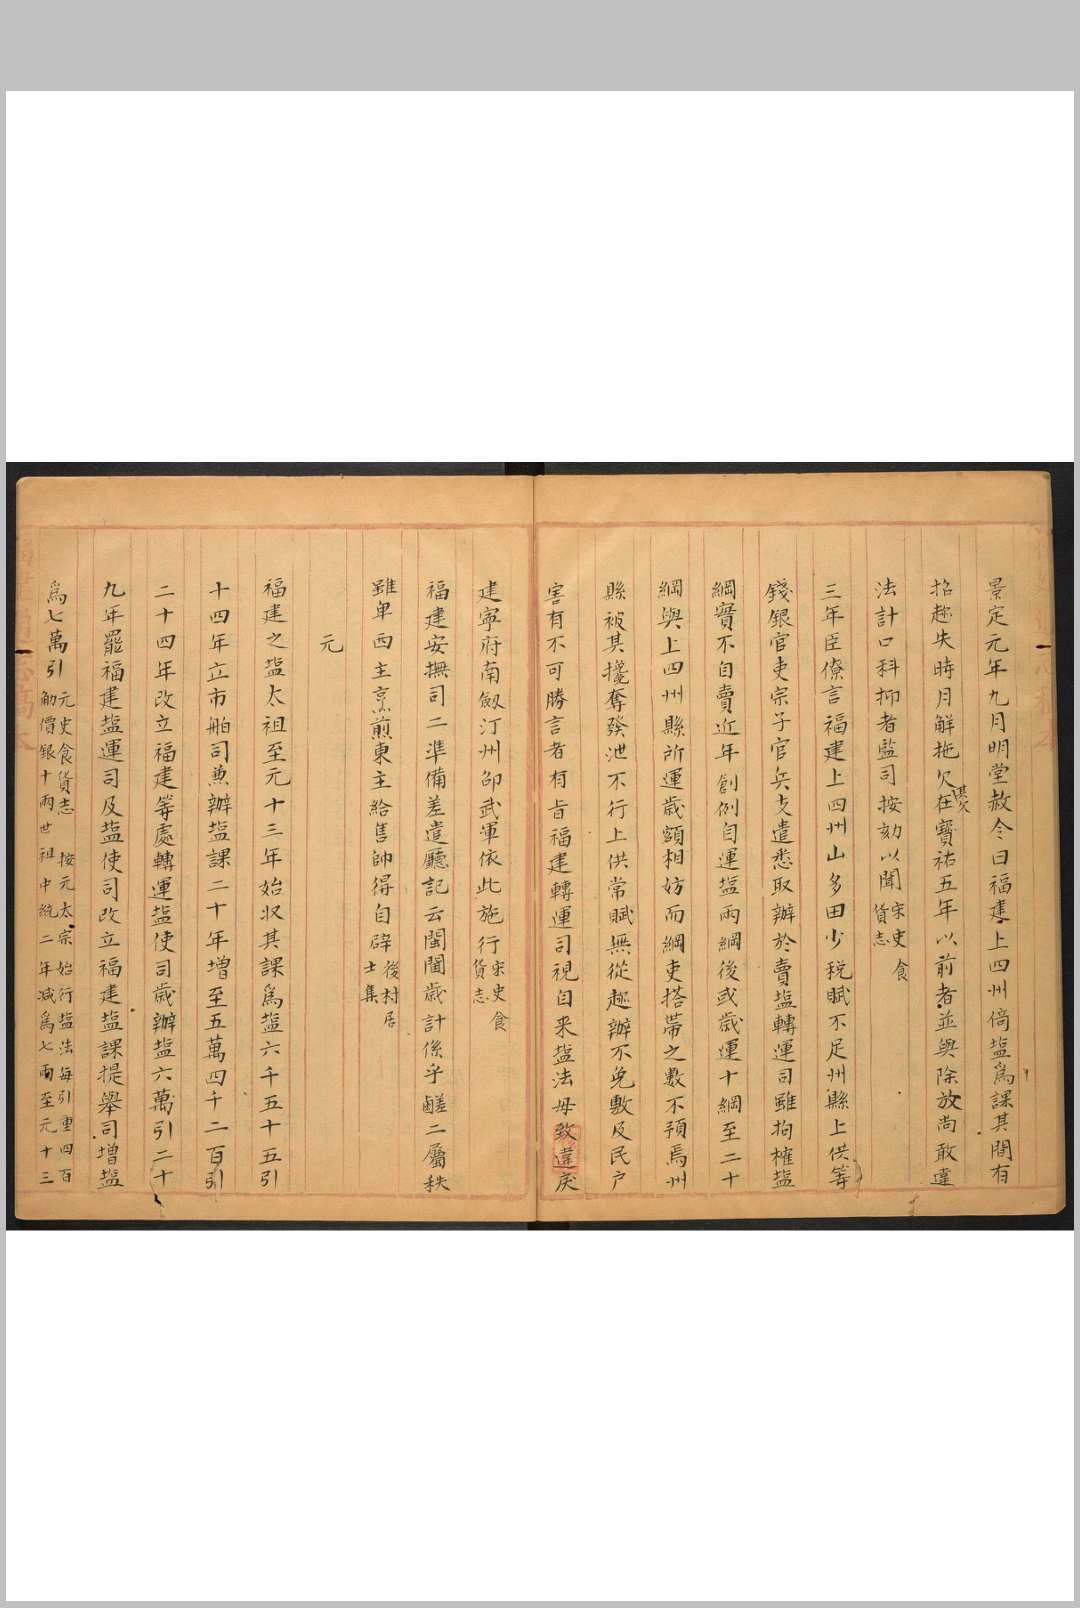 景定元年九月明堂赦令曰福建上四州倚塩爲課其間有
招趂失時月解拖欠在寳祐五年以前者並與除放尚敢違
法計口科抑者監司按劾以聞宋史食貨志
三年臣僚言福建上四州山多田少税賦不足州縣上供等
錢銀官吏宗子官兵支遣悉取辦於賣塩轉運司雖拘榷塩
綱實不自賣近年創例自運塩兩綱後或歳運十綱至二十
綱與上四州縣所運歳額相妨而綱吏搭帶之數不預焉州
縣被其攙奪發泄不行上供常賦無從趂辦不免敷及民户
害有不可勝言者有旨福建轉運司視自來塩法毋致違戾
建寧府南劔汀州邵武軍依此施行宋史食貨志
福建安撫司二凖備差遣廳記云閩閫歳計係乎鹺二屬秩
雖卑西主烹煎東主給售帥得自辟後村居士集
元
福建之塩太祖至元十三年始収其課爲塩六千五十五引
十四年立市舶司兼辦塩課二十年增至五萬四千二百引
二十四年改立福建等處轉運塩使司歳辦塩六萬引二十
九年罷福建塩運司及塩使司改立福建塩課提舉司增塩
爲七萬引元史食貨志 按元太宗始行塩法每引重四百
觔價銀十兩世祖中統二年減爲七兩至元十三